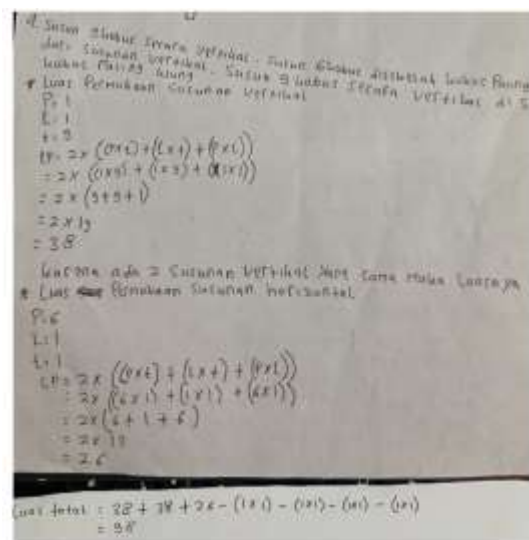 d. Susun 9 kubus secara vertikal. Susun 6 kubus disebelah kubus paling
dari susunan vertikal. Susun 9 kubus secara vertikal di s
kubus paling ujung
* Luas Permukaan susunan vertikal
P = 1
L = 1
t = 9
LP = 2 x ((p x t) + (L x t) + (p x L))
= 2 x ((1x9) + (1x9) + (1x1))
= 2 x (9+9+1)
= 2 x 19
= 38
karena ada 2 susunan vertikal yang sama maka luasnya
* Luas Permukaan susunan horizontal
P = 6
L = 1
t = 1
LP = 2 x ((p x t) + (L x t) + (p x L))
= 2x ((6 x 1) + (1 x 1) + (6 x 1))
= 2x (6 + 1 + 6)
= 2 x 13
= 26
Luas total = 38 + 38 + 26 - (1x1) - (1x1) - (1x1) - (1x1)
= 98